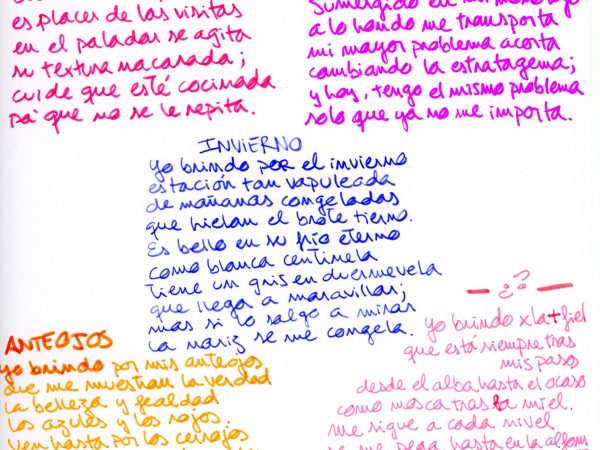 es placer de las visitas
en el paladar se agita
su textura macarada;
cuide que esté cocinada
pa' que no se le repita.
Sumergido en mi
a lo hondo me transporta
mi mayor problema acorta
cambiando la estratagema;
y hoy, tengo el mismo problema
solo que ya no me importa.
INVIERNO
Yo brindo por el invierno
estación tan vapuleada
de mañanas congeladas
que hielan el brote tierno.
Es bello en su frío eterno
como blanca centinela
tiene un gris en duermevela
que llega a maravillar;
mas si lo salgo a mirar
la nariz se me congela.
ANTEOJOS
yo brindo por mis anteojos
que me muestran la verdad
la belleza y fealdad
los azules y los rojos.
Ven hasta por los cerrojos
— ¿? —
yo brindo x la + fiel
que está siempre tras
mis pasos
desde el alba hasta el ocaso
como mosca tras la miel.
me sigue a cada nivel
se me pega hasta en la